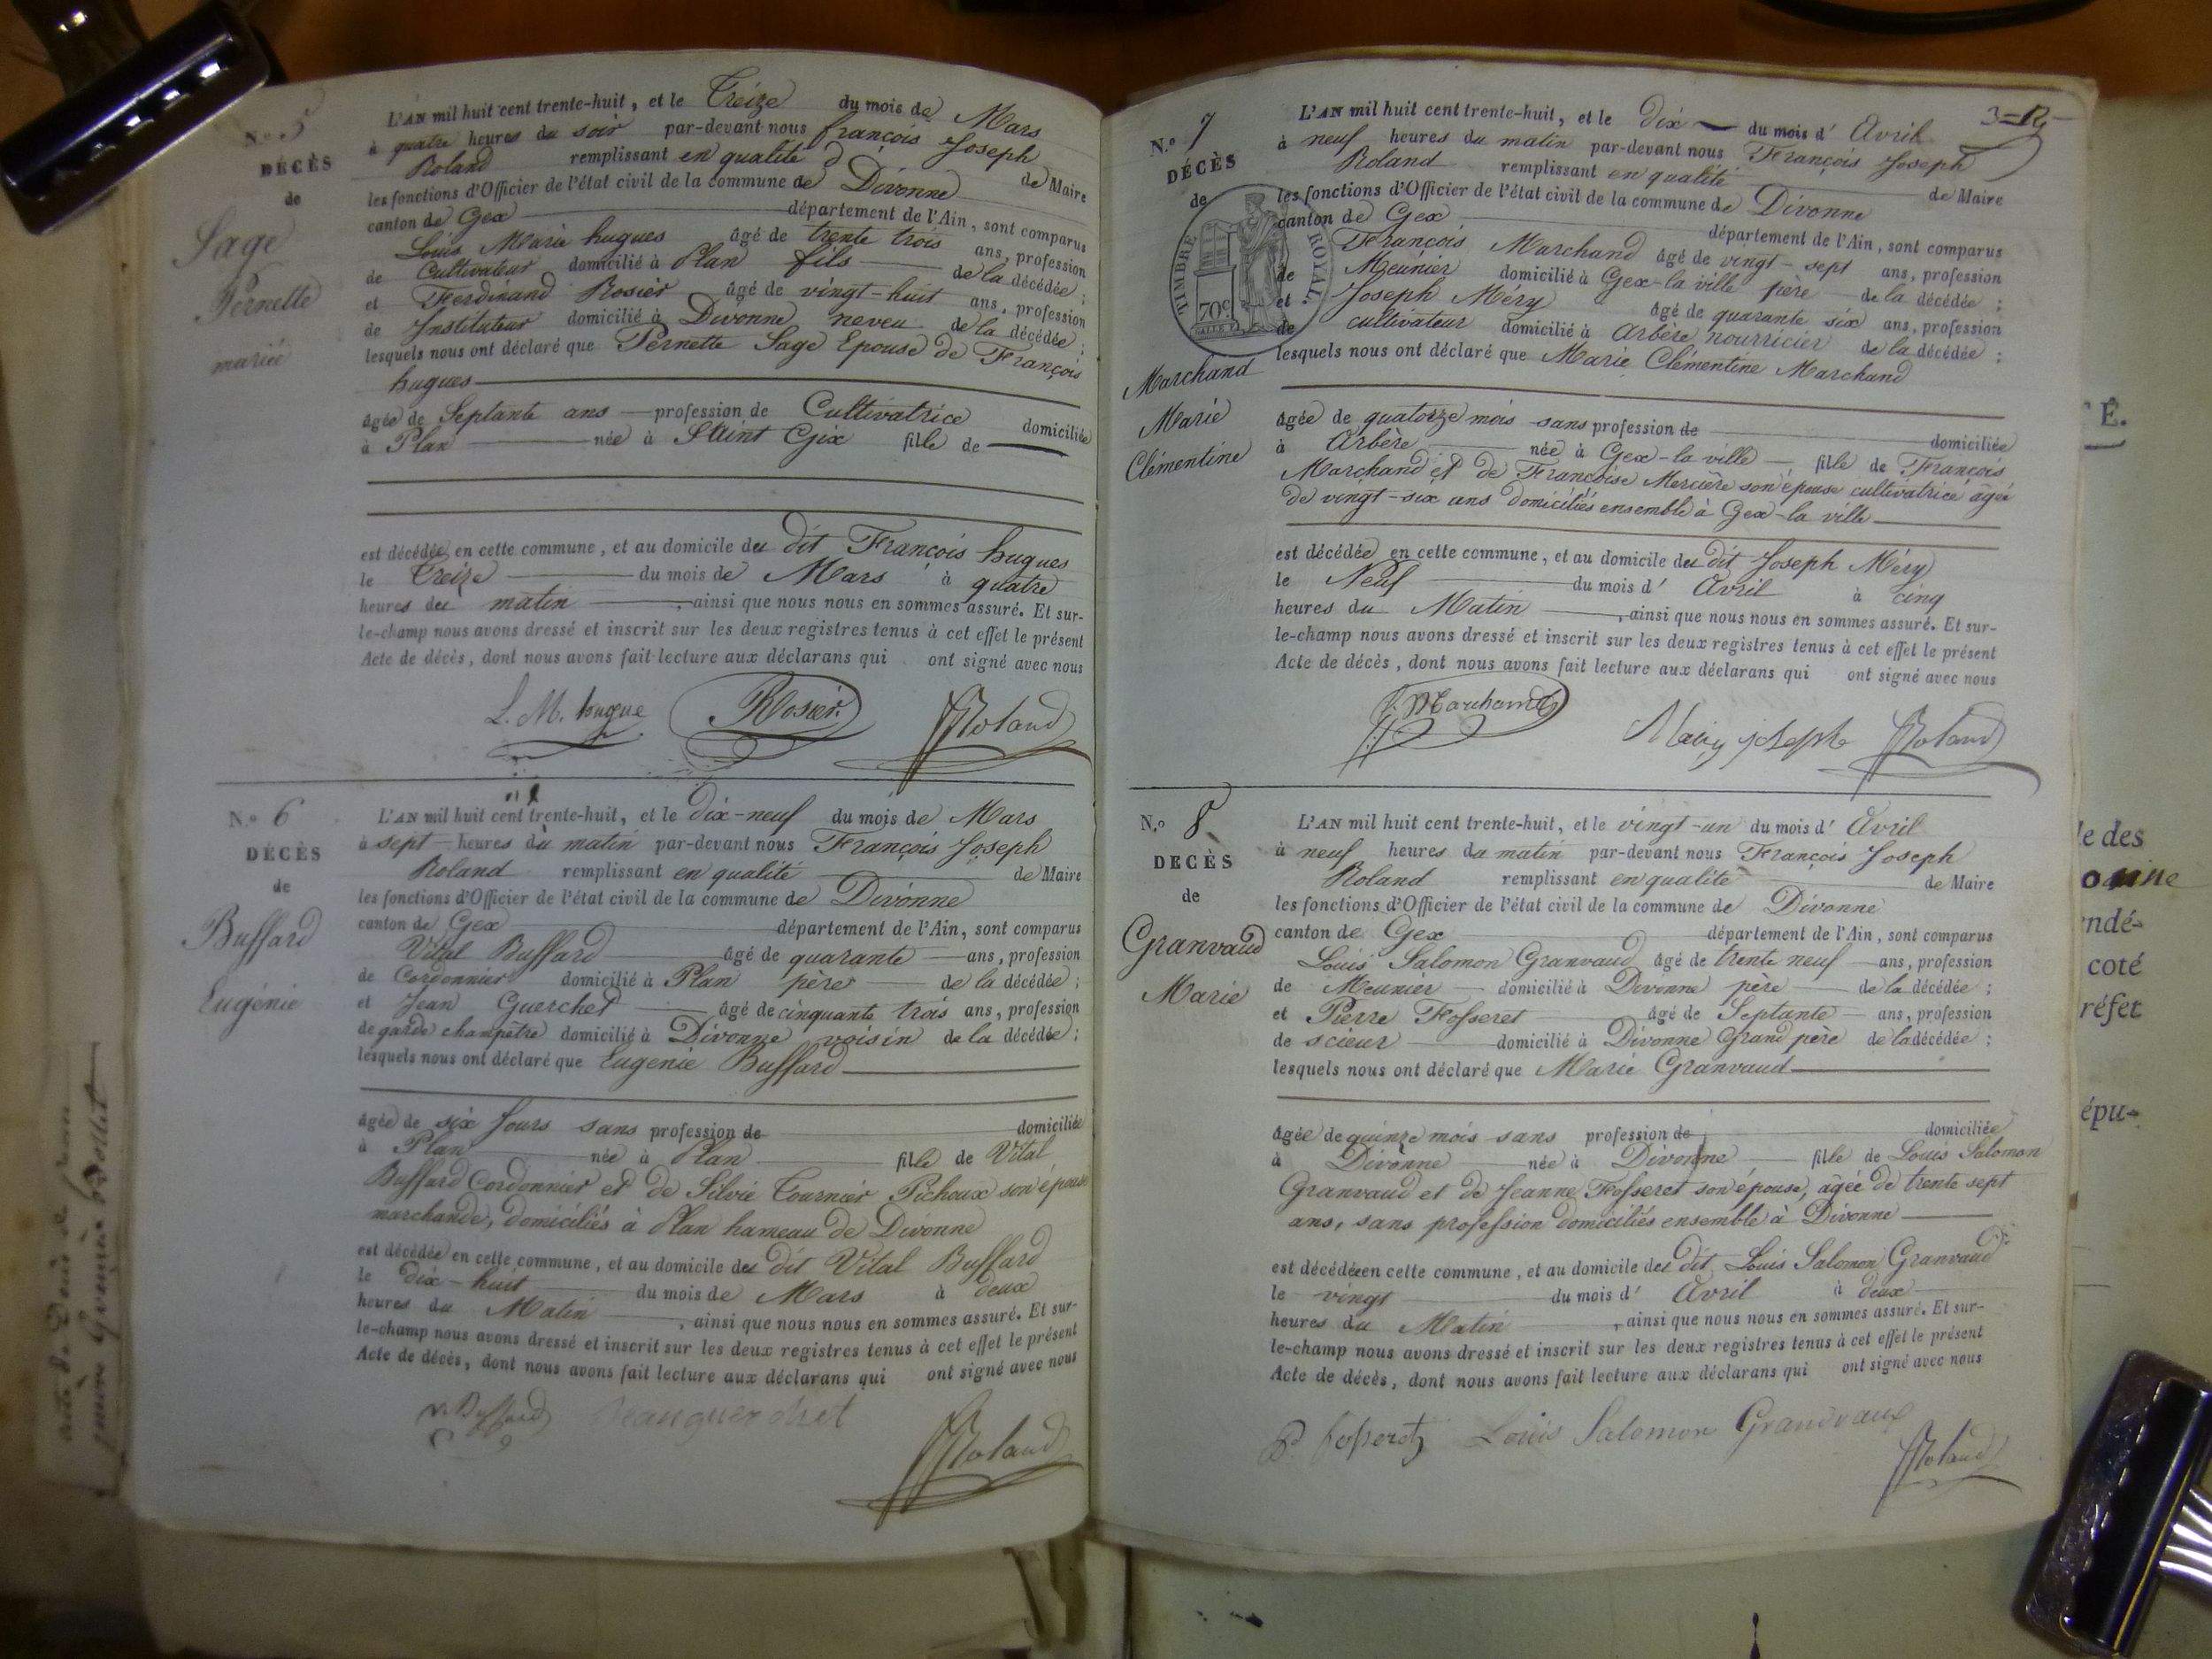 N.o 5
DÉCÈS
de
Sage
Pernette
mariée
L'AN mil huit cent trente-huit, et le Treize du mois de Mars
à quatre heures du soir par-devant nous françois Joseph
Roland remplissant en qualité de Maire
les fonctions d'Officier de l'état civil de la commune de Divonne
canton de Gex département de l'Ain, sont comparus
Louis Marie hugues âgé de trente trois ans, profession
de Cultivateur domicilié à Plan fils de la décédée ;
et Ferdinand Rosier âgé de vingt-huit ans, profession
de Instituteur domicilié à Divonne neveu de la décédée ;
lesquels nous ont déclaré que Pernette Sage Epouse de François
hugues
âgée de Septante ans profession de Cultivatrice domiciliée
à Plan née à Saint Gix fille de
est décédée en cette commune, et au domicile du dit François hugues
le Treize du mois de Mars à quatre
heures du matin, ainsi que nous nous en sommes assuré. Et sur-
le-champ nous avons dressé et inscrit sur les deux registres tenus à cet effet le présent
Acte de décès, dont nous avons fait lecture aux déclarans qui ont signé avec nous
L. M. hugue Rosier. Roland
N.o 6
DÉCÈS
de
Buffard
Eugénie
L'AN mil huit cent trente-huit, et le dix-neuf du mois de Mars
à sept heures du matin par-devant nous François Joseph
Roland remplissant en qualité de Maire
les fonctions d'Officier de l'état civil de la commune de Divonne
canton de Gex département de l'Ain, sont comparus
Vital Buffard âgé de quarante ans, profession
de Cordonnier domicilié à Plan père de la décédée ;
et Jean Guerchet âgé de cinquante trois ans, profession
de garde champêtre domicilié à Divonne voisin de la décédée ;
lesquels nous ont déclaré que Eugenie Buffard
âgée de six jours sans profession de domiciliée
à Plan née à Plan fille de Vital
Buffard Cordonnier et de Silvie Tournier Pichoux son épouse
marchande, domiciliés à Plan hameau de Divonne
est décédée en cette commune, et au domicile du dit Vital Buffard
le dix-huit du mois de Mars à deux
heures du Matin, ainsi que nous nous en sommes assuré. Et sur-
le-champ nous avons dressé et inscrit sur les deux registres tenus à cet effet le présent
Acte de décès, dont nous avons fait lecture aux déclarans qui ont signé avec nous
V. Buffard Jean guerchet Roland
N.o 7
DÉCÈS
de
TIMBRE ROYAL.
70c
Marchand
Marie
Clémentine
L'AN mil huit cent trente-huit, et le dix du mois d' Avril
à neuf heures du matin par-devant nous François Joseph
Roland remplissant en qualité de Maire
les fonctions d'Officier de l'état civil de la commune de Divonne
canton de Gex département de l'Ain, sont comparus
François Marchand âgé de vingt-sept ans, profession
de Meûnier domicilié à Gex-la ville père de la décédée ;
et Joseph Méry âgé de quarante six ans, profession
de cultivateur domicilié à Arbère nourricier de la décédée ;
lesquels nous ont déclaré que Marie Clémentine Marchand
âgée de quatorze mois sans profession de domiciliée
à Arbère née à Gex-la ville fille de François
Marchand et de Françoise Mercière son épouse cultivatrice âgée
de vingt-six ans domiciliés ensemble à Gex-la ville
est décédée en cette commune, et au domicile du dit Joseph Méry
le Neuf du mois d' Avril à cinq
heures du Matin, ainsi que nous nous en sommes assuré. Et sur-
le-champ nous avons dressé et inscrit sur les deux registres tenus à cet effet le présent
Acte de décès, dont nous avons fait lecture aux déclarans qui ont signé avec nous
Marchand Joseph Roland
N.o 8
DECÈS
de
Granvaud
Marie
L'AN mil huit cent trente-huit, et le vingt-un du mois d' Avril
à neuf heures du matin par-devant nous François Joseph
Roland remplissant en qualité de Maire
les fonctions d'Officier de l'état civil de la commune de Divonne
canton de Gex département de l'Ain, sont comparus
Louis Salomon Granvaud âgé de trente neuf ans, profession
de Meunier domicilié à Divonne père de la décédée ;
et Pierre Fosseret âgé de Septante ans, profession
de scieur domicilié à Divonne Grand père de la décédée ;
lesquels nous ont déclaré que Marie Granvaud
âgée de quinze mois sans profession de domiciliée
à Divonne née à Divonne fille de Louis Salomon
Granvaud et de Jeanne Fosseret son épouse, agée de trente sept
ans, sans profession domiciliés ensemble à Divonne
est décédée en cette commune, et au domicile du dit Louis Salomon Granvaud
le vingt du mois d' Avril à deux
heures du Matin, ainsi que nous nous en sommes assuré. Et sur-
le-champ nous avons dressé et inscrit sur les deux registres tenus à cet effet le présent
Acte de décès, dont nous avons fait lecture aux déclarans qui ont signé avec nous
P. fosseret Louis Salomon Grandvaux Roland
É.
le des
ndé-
coté
réfet
épu-